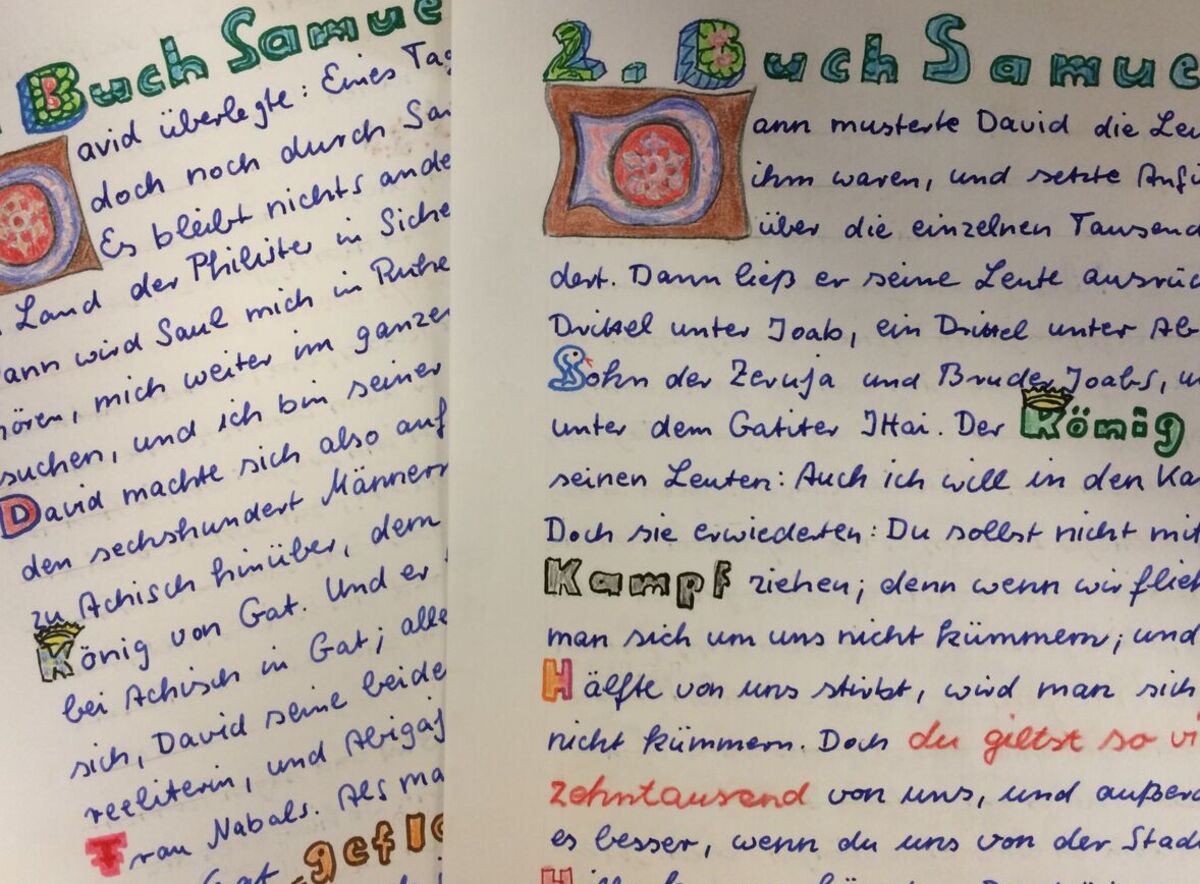 Buch Samue
David überlegte: Eines Tag
doch noch durch Sa
Es bleibt nichts ande
Land der Philister in Siche
ann wird Saul mich in Ruhe
hören, mich weiter im ganzen
suchen, und ich bin seiner
David machte sich also auf
den sechshundert Männern
zu Achisch hinüber, dem
König von Gat. Und er
bei Achisch in Gat; alle
sich, David seine beide
reeliterin, und Abigaj
Frau Nabals. Als ma
Gat geflo
2. Buch Samue
Dann musterte David die Leu
ihm waren, und setzte Anfü
über die einzelnen Tausend
dert. Dann ließ er seine Leute ausrüc
Drittel unter Joab, ein Drittel unter Ab
Sohn der Zeruja und Bruder Joabs, u
unter dem Gatiter Ittai. Der König
seinen Leuten: Auch ich will in den Ka
Doch sie erwiederten: Du sollst nicht mit
Kampf ziehen; denn wenn wir flieh
man sich um uns nicht kümmern; und
Hälfte von uns stirbt, wird man sich
nicht kümmern. Doch du giltst so vi
zehntausend von uns, und außerd
es besser, wenn du uns von der Stad